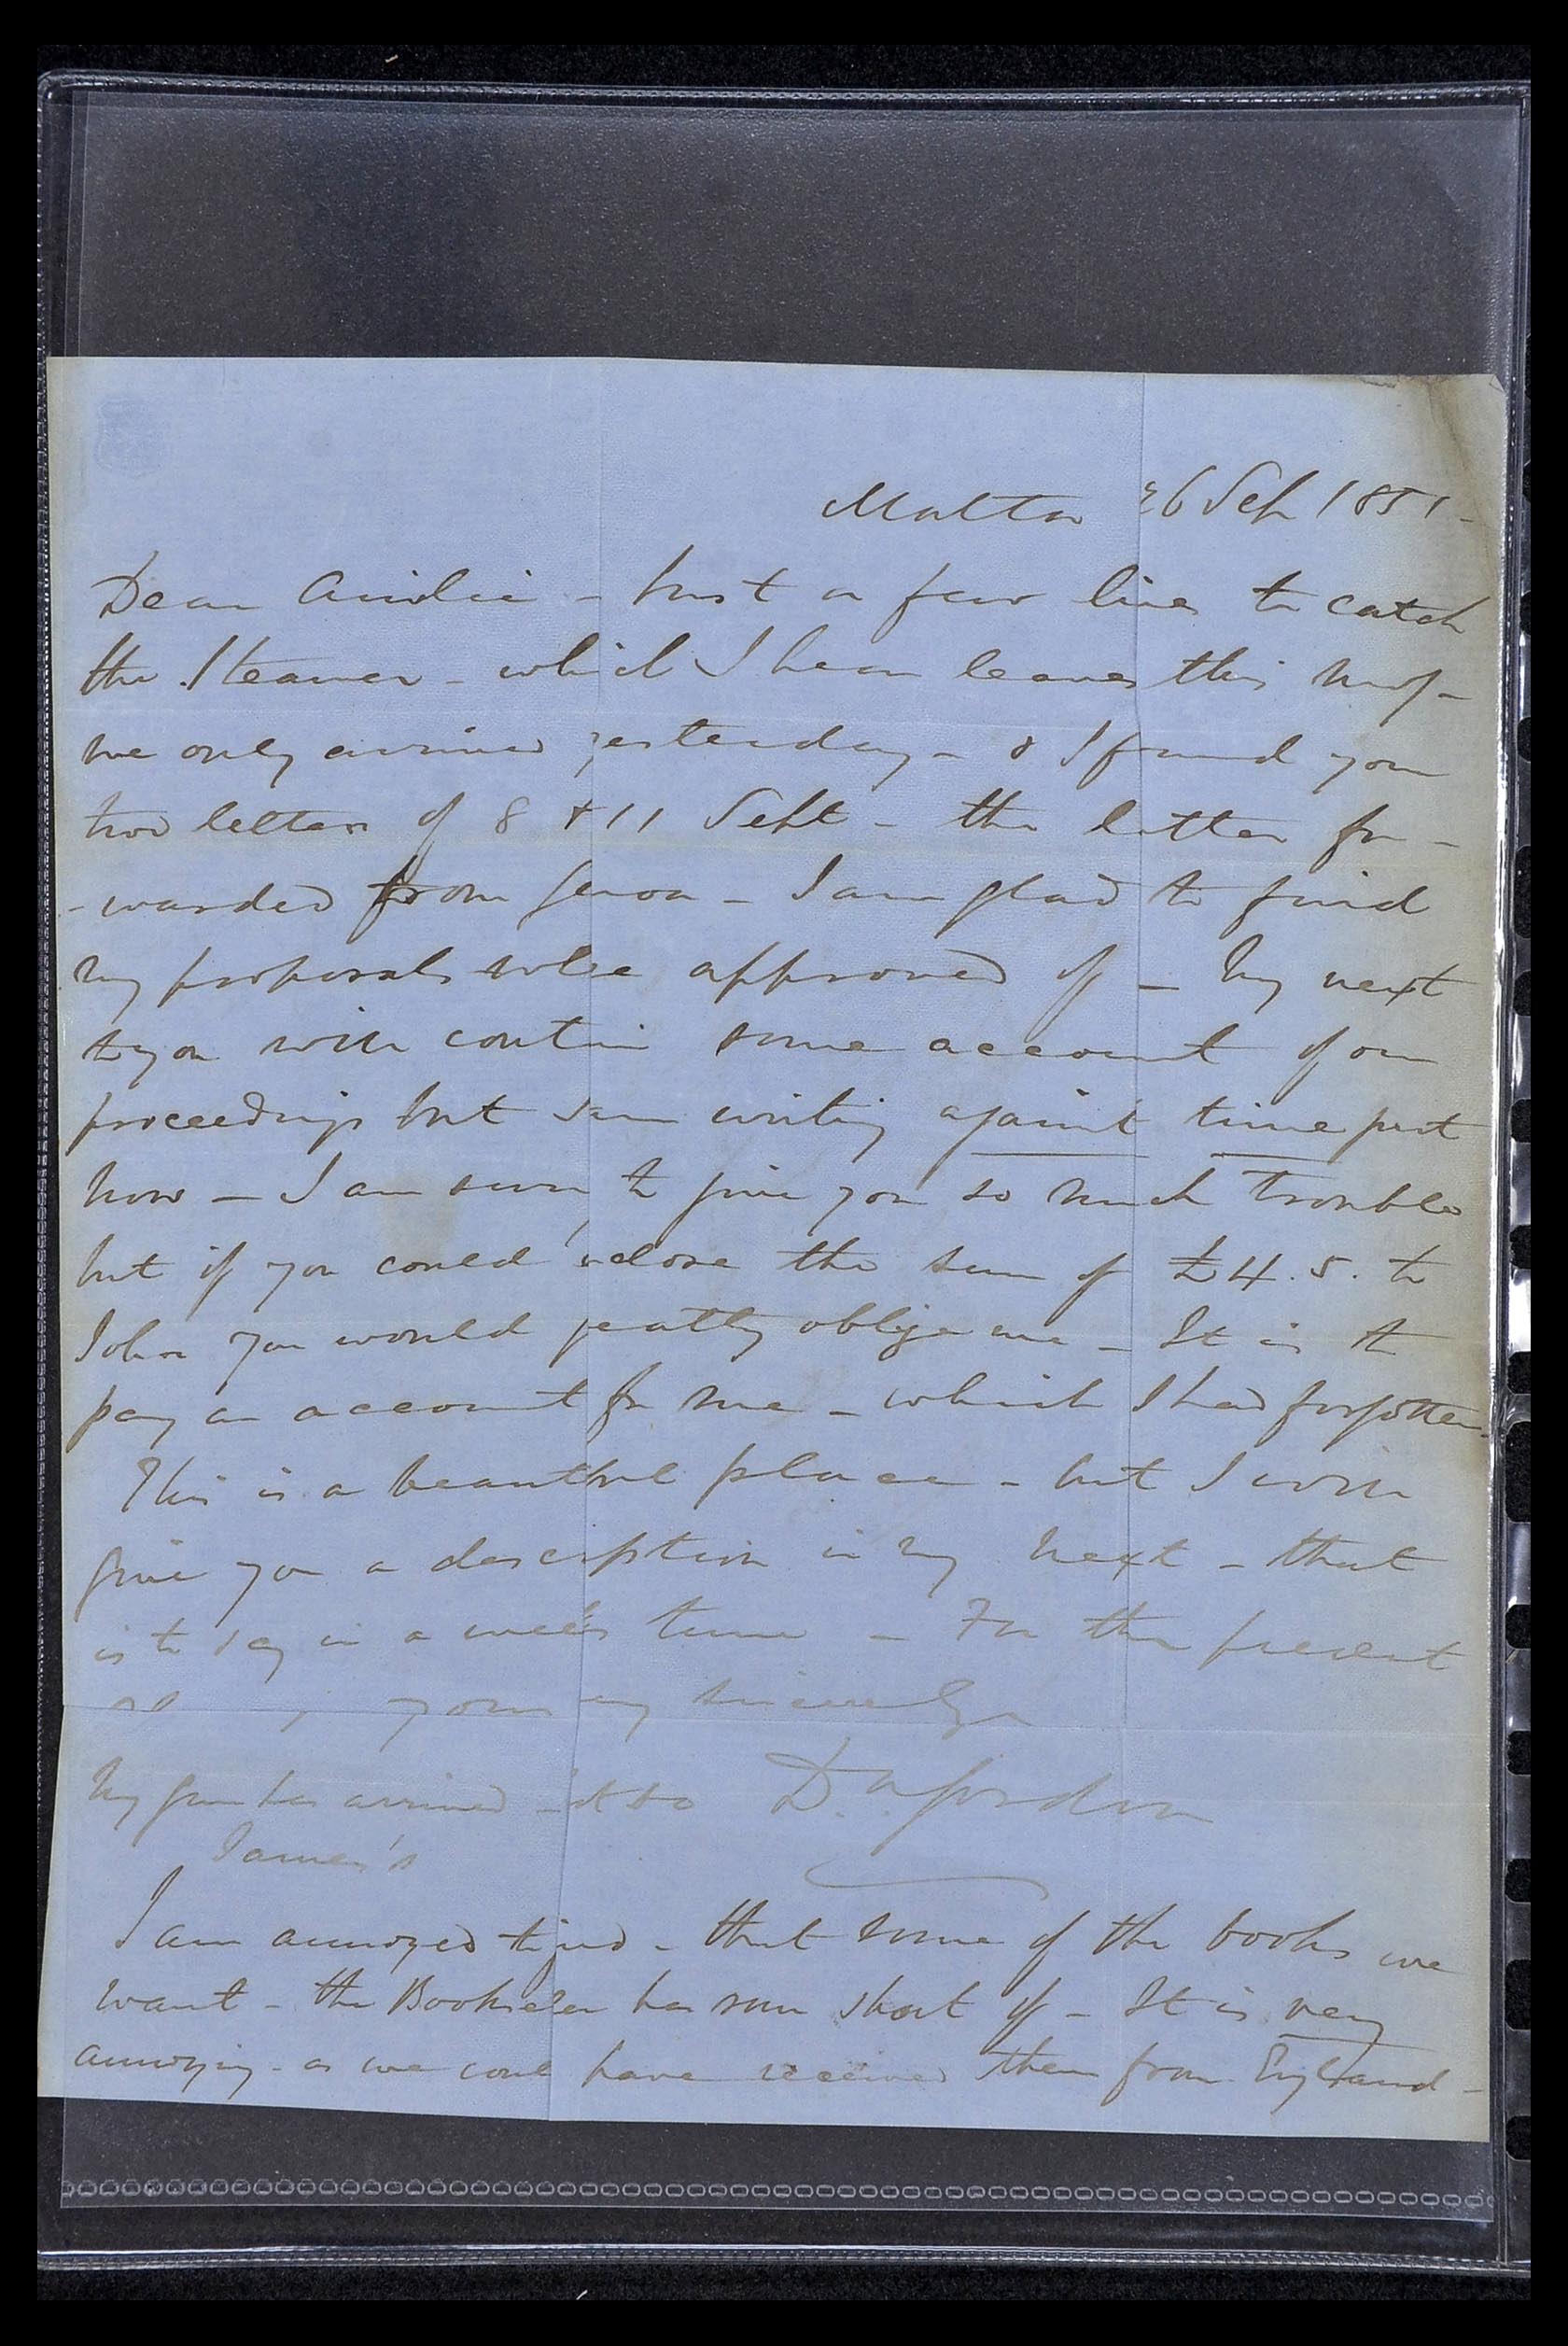 Malta 26 Sep 1851 -
Dear Ainslie - Just a few lines to catch
the Steamer - which I hear leaves this
we only arrived yesterday - & I found your
two letters of 8 & 11 Sept - the latter for -
- warded from Genoa - I am glad to find
my proposals were approved of - My next
to you will contain some account of our
proceedings but I am writing against time just
now - I am sorry to give you so much trouble
but if you could inclose the sum of £4.5. to
John you would greatly oblige me - It is to
pay an account for me - which I had forgotten.
This is a beautiful place - but I will
give you a description in my next - that
is to say in a week's time - For the present
yours sincerely
My gun has arrived - & so Gordon
James's
I am annoyed to find - that some of the books we
want - the Bookseller has run short of - It is very
annoying - as we could have received them from England -